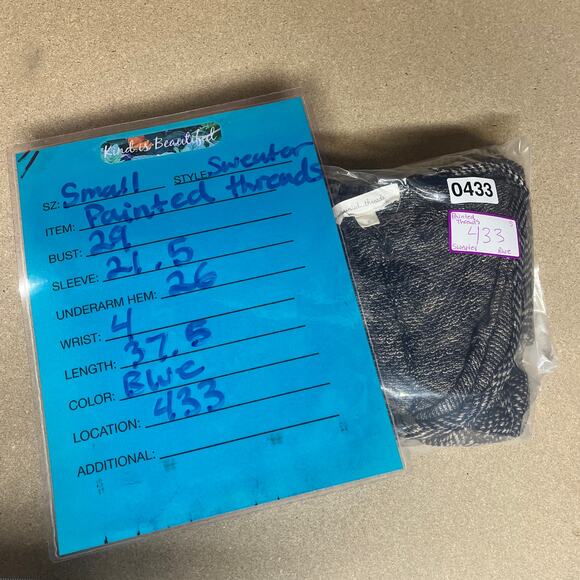 Kind is Beautiful
SZ: Small STYLE: Sweater
ITEM: Painted threads
BUST: 29
SLEEVE: 21.5
UNDERARM HEM: 26
WRIST: 4
LENGTH: 37.5
COLOR: Blue
LOCATION: 433
ADDITIONAL:
painted threads
0433
Painted S
Threads
433
Sweater Blue